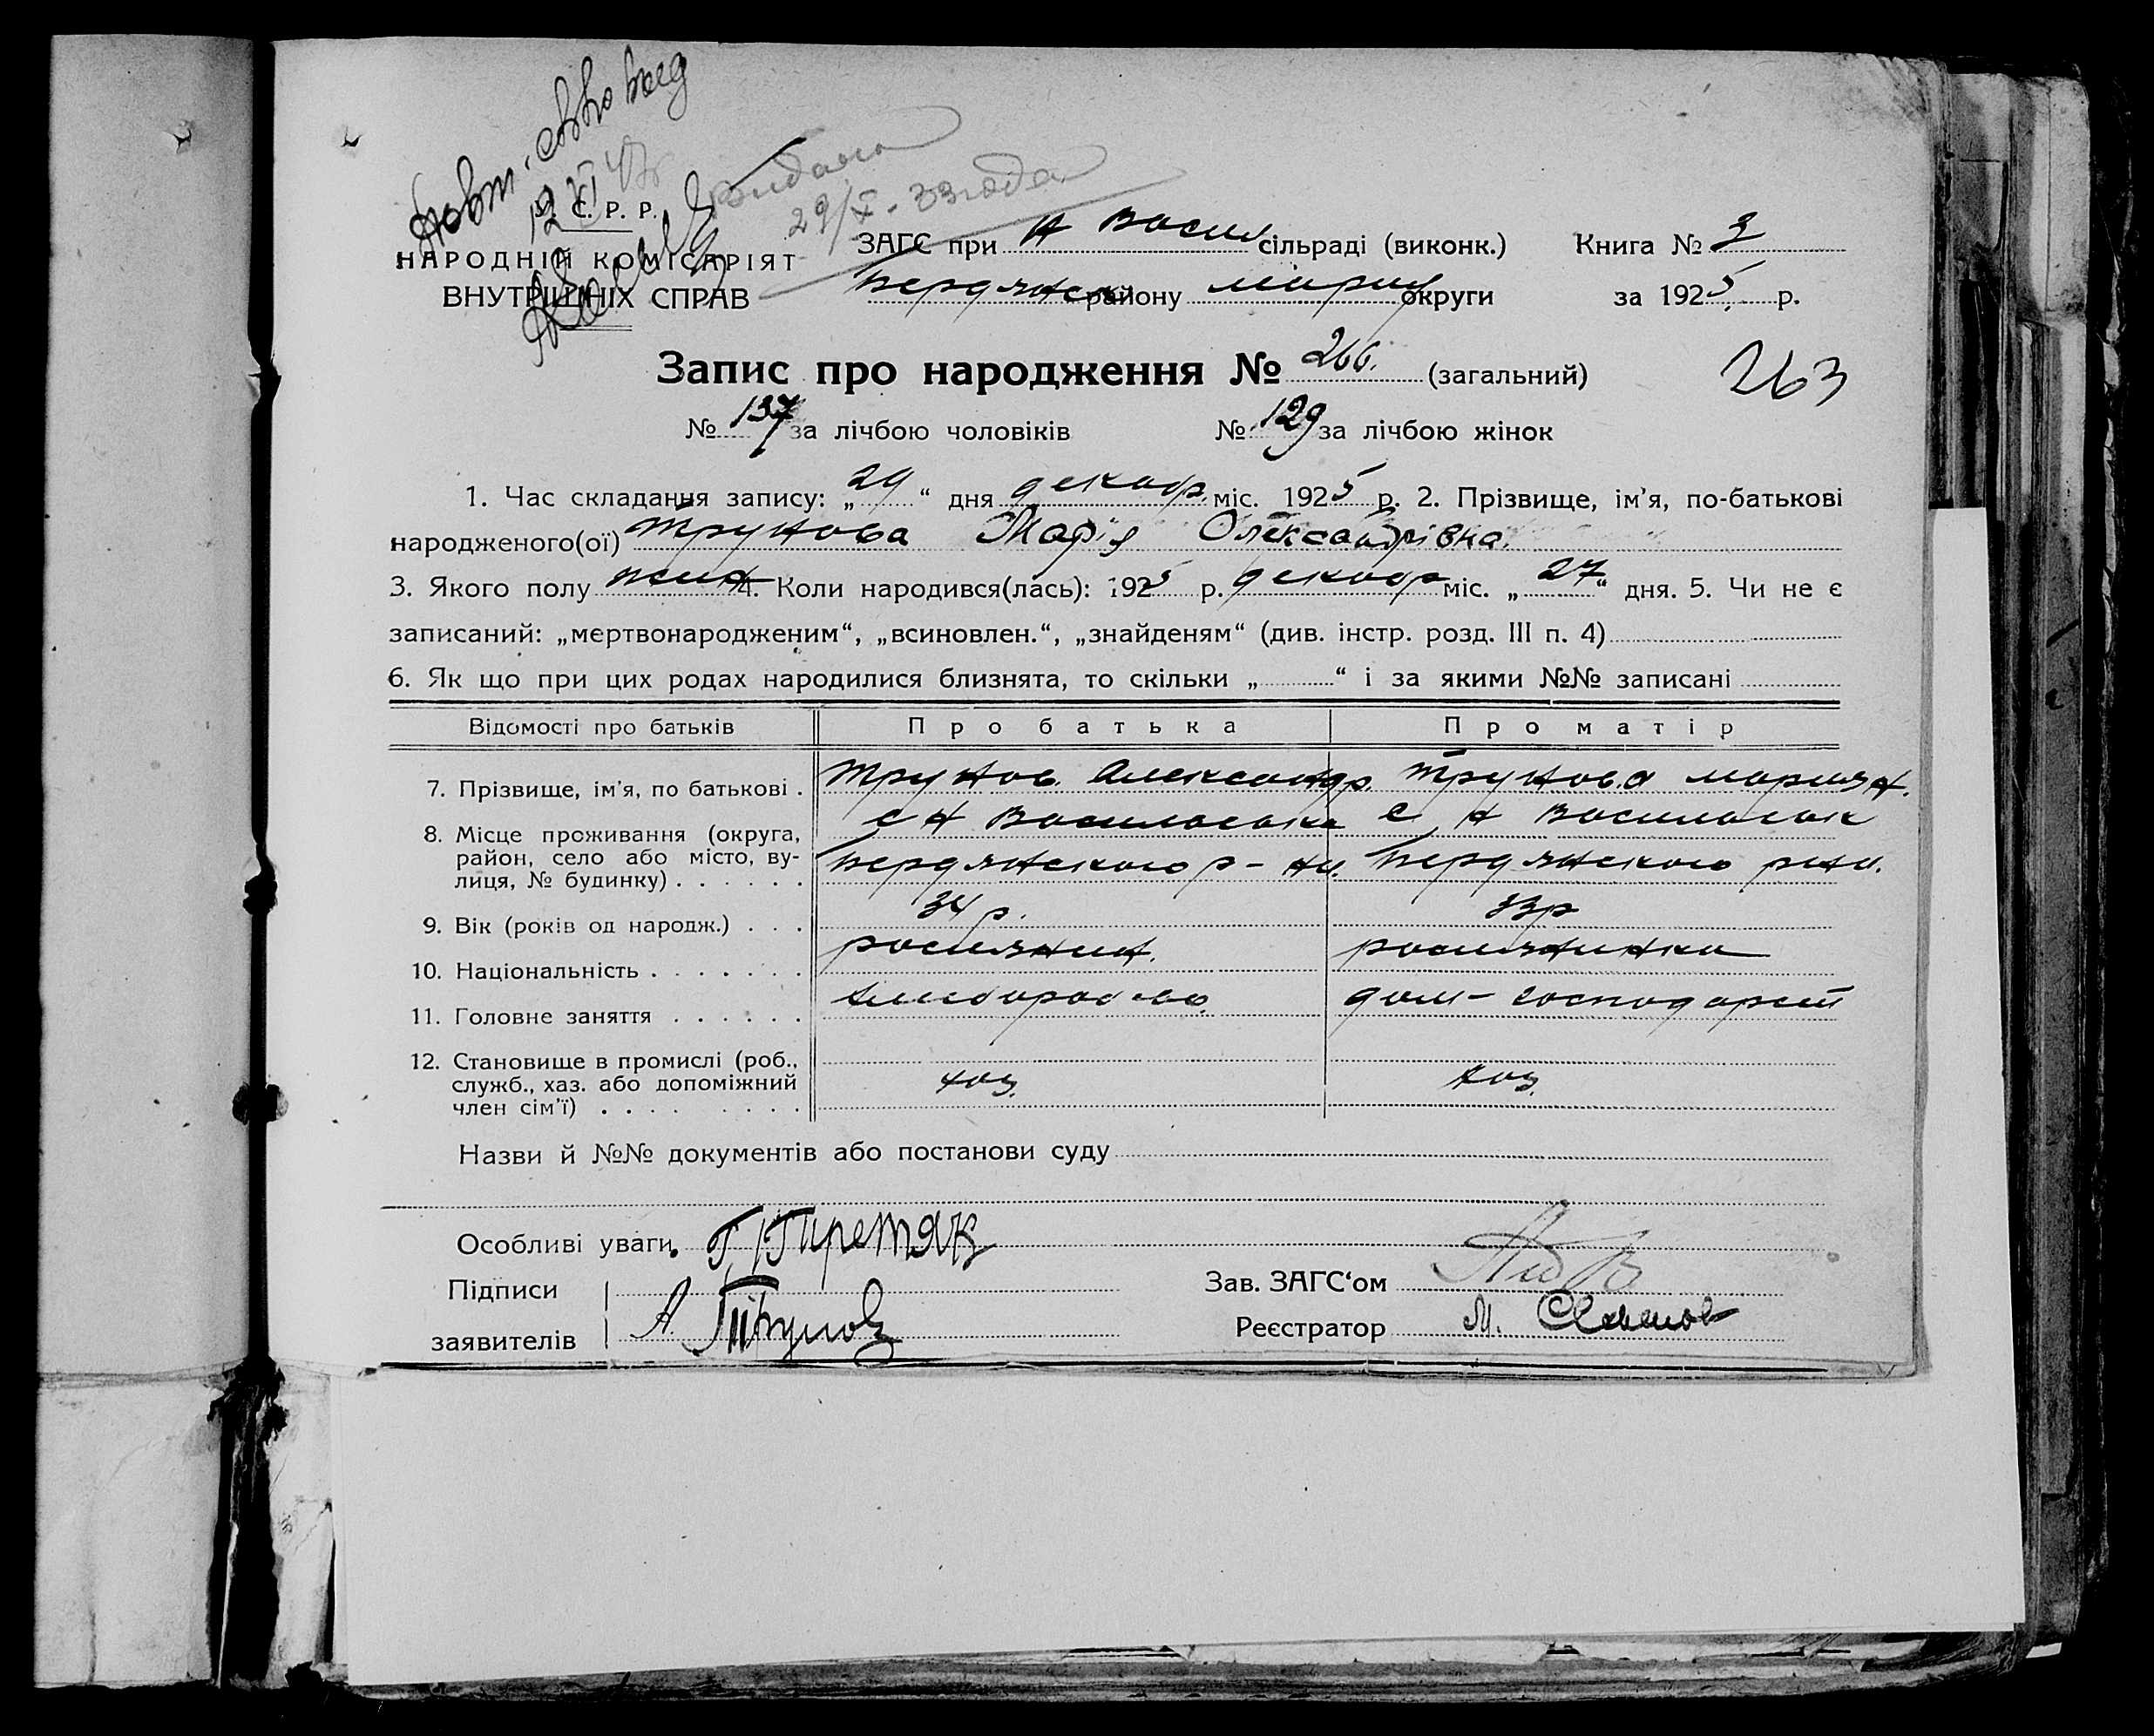 Повт. св-во выд
12 XI 47г
Видана
29/X - 33 года
У. С. Р. Р.
НАРОДНІЙ КОМІСАРІЯТ
ВНУТРІШНІХ СПРАВ
ЗАГС при Н Васил сільраді (виконк.) Книга № 3
Бердянськ району Маріуп округи за 1925 р.
Запис про народження № 266. (загальний)
263
№ 137 за лічбою чоловіків № 129 за лічбою жінок
1. Час складання запису: „29“ дня декабр. міс. 1925 р. 2. Прізвище, ім'я, по-батькові
народженого(ої) Трунова Марія Олександрівна.
3. Якого полу жин 4. Коли народився(лась): 1925 р. декабр міс. „27“ дня. 5. Чи не є
записаний: „мертвонародженим“, „всиновлен.“, „знайденям“ (див. інстр. розд. III п. 4)
6. Як що при цих родах народилися близнята, то скільки „ “ і за якими №№ записані
Відомості про батьків Про батька Про матір
7. Прізвище, ім'я, по батькові . Трунов Александр. Трунова Мария Н.
8. Місце проживання (округа, с Н Василовка с Н Василовк
район, село або місто, ву- Бердянского р-ну. Бердянского рну.
лиця, № будинку) . . . . . .
9. Вік (років од народж.) . . . 34 р. 33р
10. Національність . . . . . . . росиянин. росиянинка
11. Головне заняття . . . . . . хлібороб дом-господарст
12. Становище в промислі (роб.,
служб., хаз. або допоміжний хоз. хоз.
член сім'ї) . . . . . . . . .
Назви й №№ документів або постанови суду
Особливі уваги. Г. Третяк
Підписи Зав. ЗАГС'ом
заявителів А Трунов Реєстратор М.